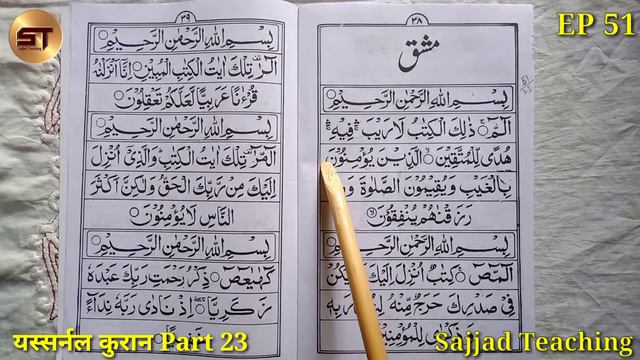 ST
Sajjad Teaching
EP 51
٣٨
مشق
بِسْمِ اللهِ الرَّحْمٰنِ الرَّحِيْمِ ○
الٓمّٓ ○ ذٰلِكَ الْكِتٰبُ لَا رَيْبَ ۛ فِيْهِ ۛ
هُدًى لِّلْمُتَّقِيْنَ ○ الَّذِيْنَ يُؤْمِنُوْنَ
بِالْغَيْبِ وَيُقِيْمُوْنَ الصَّلٰوةَ
رَزَقْنٰهُمْ يُنْفِقُوْنَ ○
بِسْمِ اللهِ الرَّحْمٰنِ الرَّحِيْمِ ○
الٓمّٓصٓ ○ كِتٰبٌ اُنْزِلَ اِلَيْكَ يَكُنْ
فِيْ صَدْرِكَ حَرَجٌ مِّنْهُ بِهٖ
وَذِكْرٰى لِلْمُؤْمِنِيْنَ
٣٩
بِسْمِ اللهِ الرَّحْمٰنِ الرَّحِيْمِ ○
الٓرٰ تِلْكَ اٰيٰتُ الْكِتٰبِ الْمُبِيْنِ ○ اِنَّا اَنْزَلْنٰهُ
قُرْءٰنًا عَرَبِيًّا لَّعَلَّكُمْ تَعْقِلُوْنَ ○
بِسْمِ اللهِ الرَّحْمٰنِ الرَّحِيْمِ ○
الٓمّٓرٰ تِلْكَ اٰيٰتُ الْكِتٰبِ وَالَّذِيْٓ اُنْزِلَ
اِلَيْكَ مِنْ رَّبِّكَ الْحَقُّ وَلٰكِنَّ اَكْثَرَ
النَّاسِ لَا يُؤْمِنُوْنَ ○
بِسْمِ اللهِ الرَّحْمٰنِ الرَّحِيْمِ ○
كٓهٰيٰعٓصٓ ○ ذِكْرُ رَحْمَتِ رَبِّكَ عَبْدَهٗ
زَكَرِيَّا ○ اِذْ نَادٰى رَبَّهٗ نِدَآءً
यस्सर्नल कुरान Part 23
Sajjad Teaching